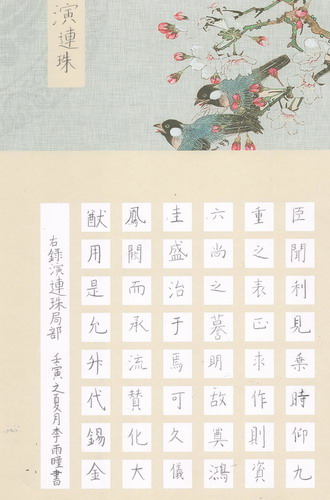 演連珠
臣聞利見乗時仰九
重之表正求作則資
六尚之謩明故奠鴻
圭盛治于焉可久儀
鳳闕而承流賛化大
猷用是允升代錫金
右録演連珠局部 壬寅之夏月李雨曈書